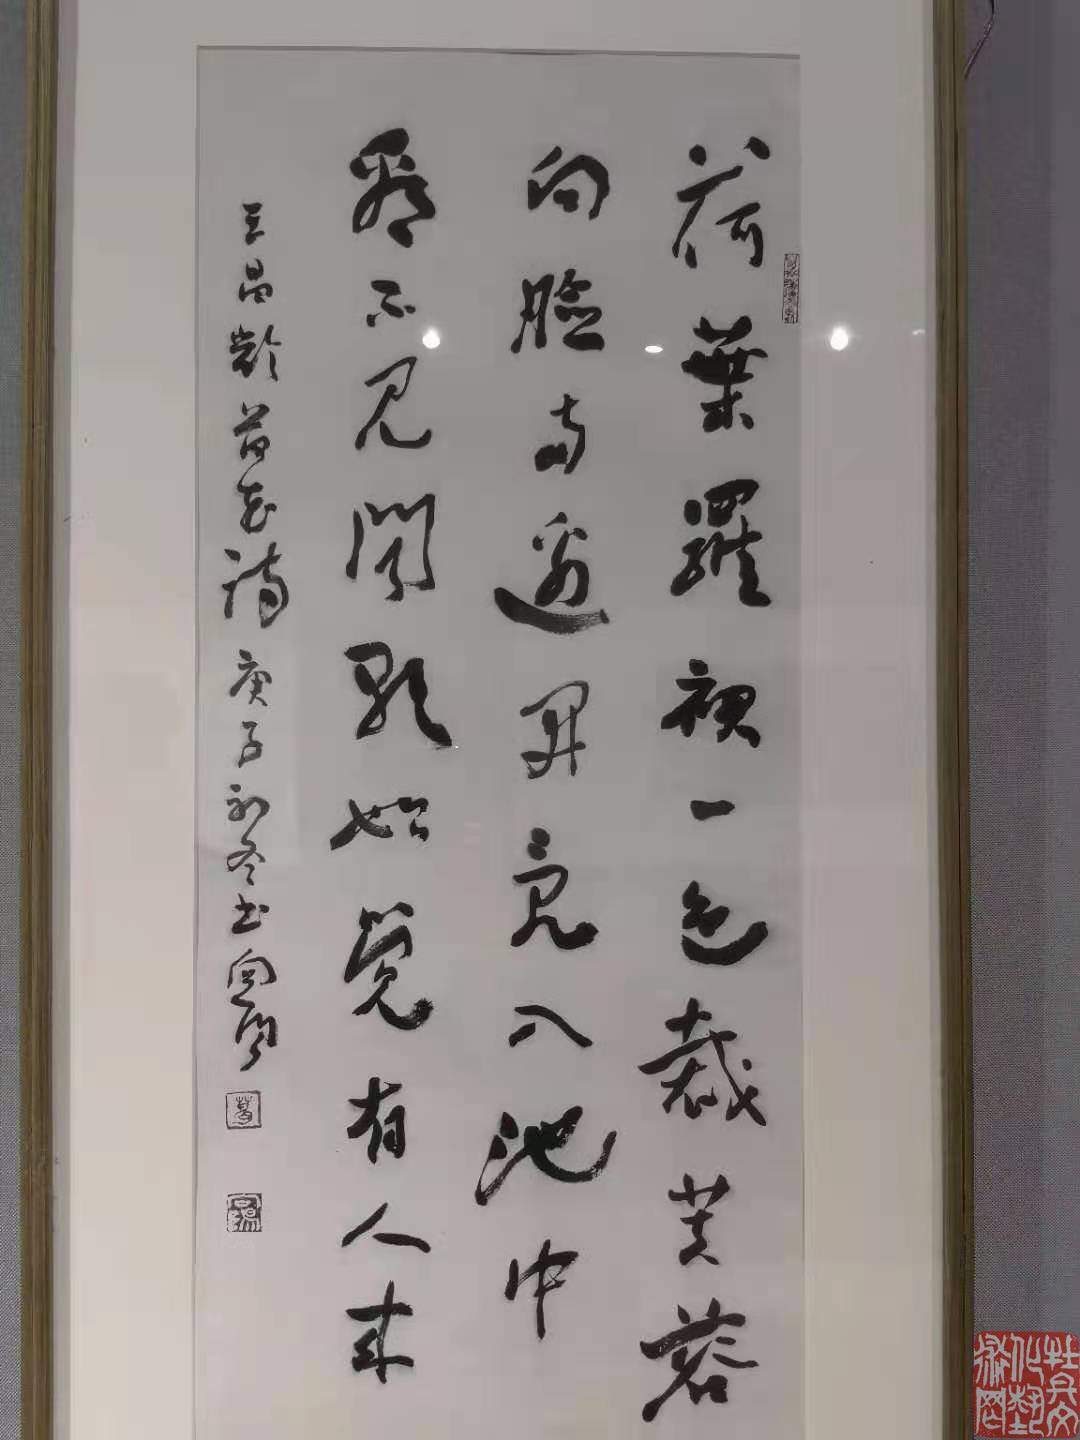 荷葉羅裙一色裁芙蓉
向臉两邊開入池中
看不見聞歌始覺有人來
王昌齡花詩庚子初冬书